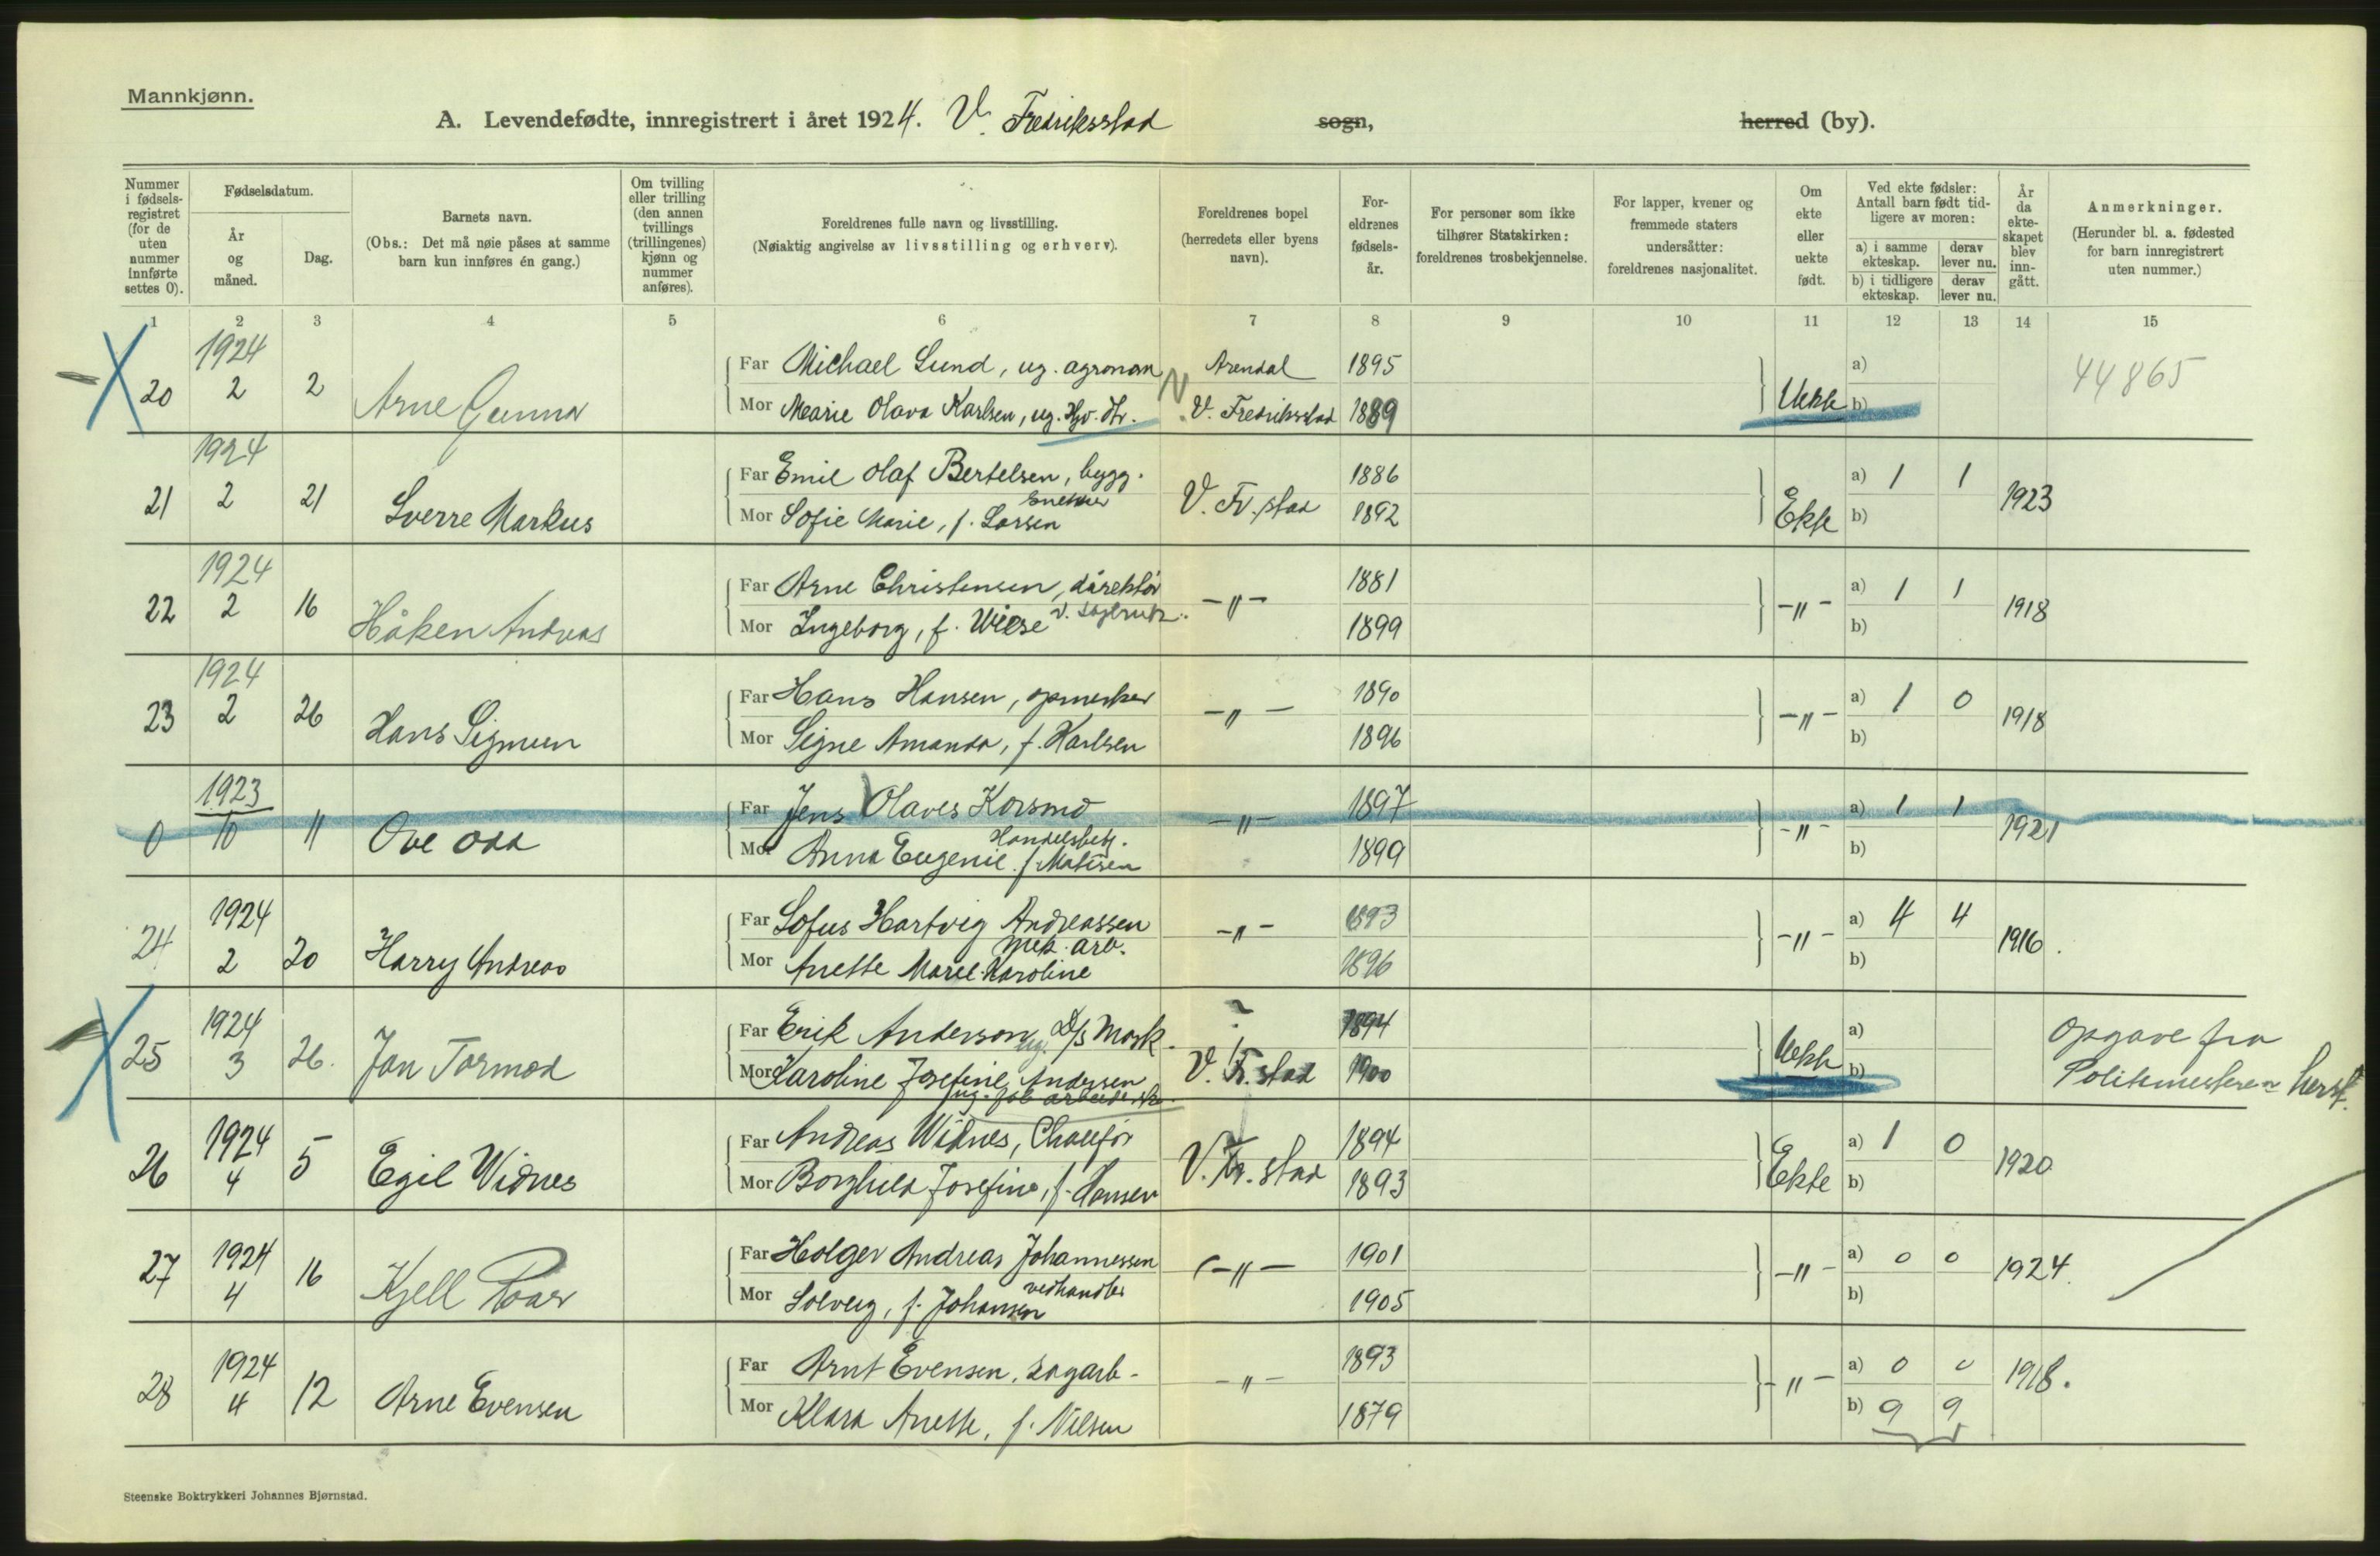 Mannkjønn.
A. Levendefødte, innregistrert i året 1924. V. Fredriksstad sogn, herred (by).
Nummer i fødselsregistret (for de uten nummer innførte settes 0).
Fødselsdatum.
År og måned.
Dag.
Barnets navn.
(Obs.: Det må nøie påses at samme barn kun innføres én gang.)
Om tvilling eller trilling (den annen tvillings (trillingenes) kjønn og nummer anføres).
Foreldrenes fulle navn og livsstilling.
(Nøiaktig angivelse av livsstilling og erhverv).
Foreldrenes bopel (herredets eller byens navn).
Foreldrenes fødselsår.
For personer som ikke tilhører Statskirken: foreldrenes trosbekjennelse.
For lapper, kvener og fremmede staters undersåtter: foreldrenes nasjonalitet.
Om ekte eller uekte født.
Ved ekte fødsler: Antall barn født tidligere av moren:
a) i samme ekteskap. derav lever nu.
b) i tidligere ekteskap. derav lever nu.
År da ekteskapet blev inngått.
Anmerkninger.
(Herunder bl. a. fødested for barn innregistrert uten nummer.)
1 2 3 4 5 6 7 8 9 10 11 12 13 14 15
1924
20 2 2 Arne Gunnar
Far Michael Lund, ug. agronom Arendal 1895 a) 44865
Mor Marie Olava Karlsen, ug. Hjv. Str. V. Fredriksstad 1889 Uekte b)
1924
21 2 21 Sverre Markus
Far Emil Olaf Bertelsen, bygg. snekker 1886 a) 1 1
V. Fr.stad Ekte 1923
Mor Sofie Marie, f. Larsen 1892 b)
1924
22 2 16 Håken Andreas
Far Arne Christensen, direktør 1881 a) 1 1
-"- -"- 1918
Mor Ingeborg, f. Wiese 1899 b)
1924
23 2 26 Hans Sigmun
Far Hans Hansen, opmerker 1890 a) 1 0
-"- -"- 1918
Mor Signe Amanda, f. Karlsen 1896 b)
1923
0 10 11 Ove Odd
Far Jens Olaves Korsmo 1897 a) 1 1
Handelsbetj. -"- -"- 1921
Mor Anna Eugenie f. Matisen 1899 b)
1924
24 2 20 Harry Andreas
Far Sofus Hartvig Andreassen 1893 a) 4 4
mek. arb. -"- -"- 1916.
Mor Anette Marie Karoline 1896 b)
1924
25 3 26. Jan Tormod
Far Erik Anderson ug. D/s Mask. ? 1894 a) Opgave fra
Mor Karoline Josefine Andersen V. Fr.stad 1900 Uekte b) Politimesteren herst.
ug. fab arbeiderske.
1924
26 4 5 Egil Widnes
Far Andreas Widnes, Chaufør 1894 a) 1 0
V. Fr.stad Ekte 1920
Mor Borghild Josefine, f. Hansen 1893 b)
1924
27 4 16 Kjell Roar
Far Holger Andreas Johannessen 1901 a) 0 0
vedhandler -"- -"- 1924.
Mor Solveig, f. Johansen 1905 b)
1924
28 4 12 Arne Evensen
Far Arnt Evensen, sagarb- 1893 a) 0 0
-"- -"- 1918.
Mor Klara Anette, f. Nilsen 1879 b) 9 9
Steenske Boktrykkeri Johannes Bjørnstad.